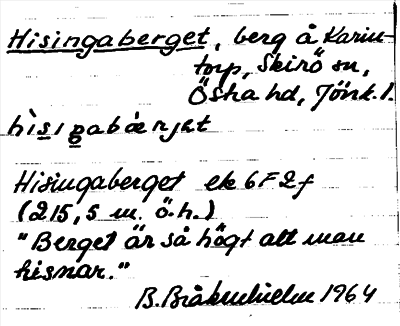 Hisingaberget, berg å Karins-
torp, Skirö sn,
Östra hd, Jönk. l.
hisiŋabærjet
Hisingaberget ek 6F2f
(215,5 m. ö.h.)
"Berget är så högt att man
hisnar."
B. 1964